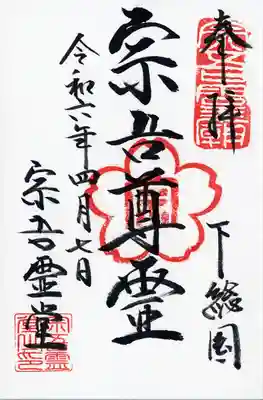 奉拝
下総国
宗吾尊霊
令和六年四月七日
宗吾霊堂